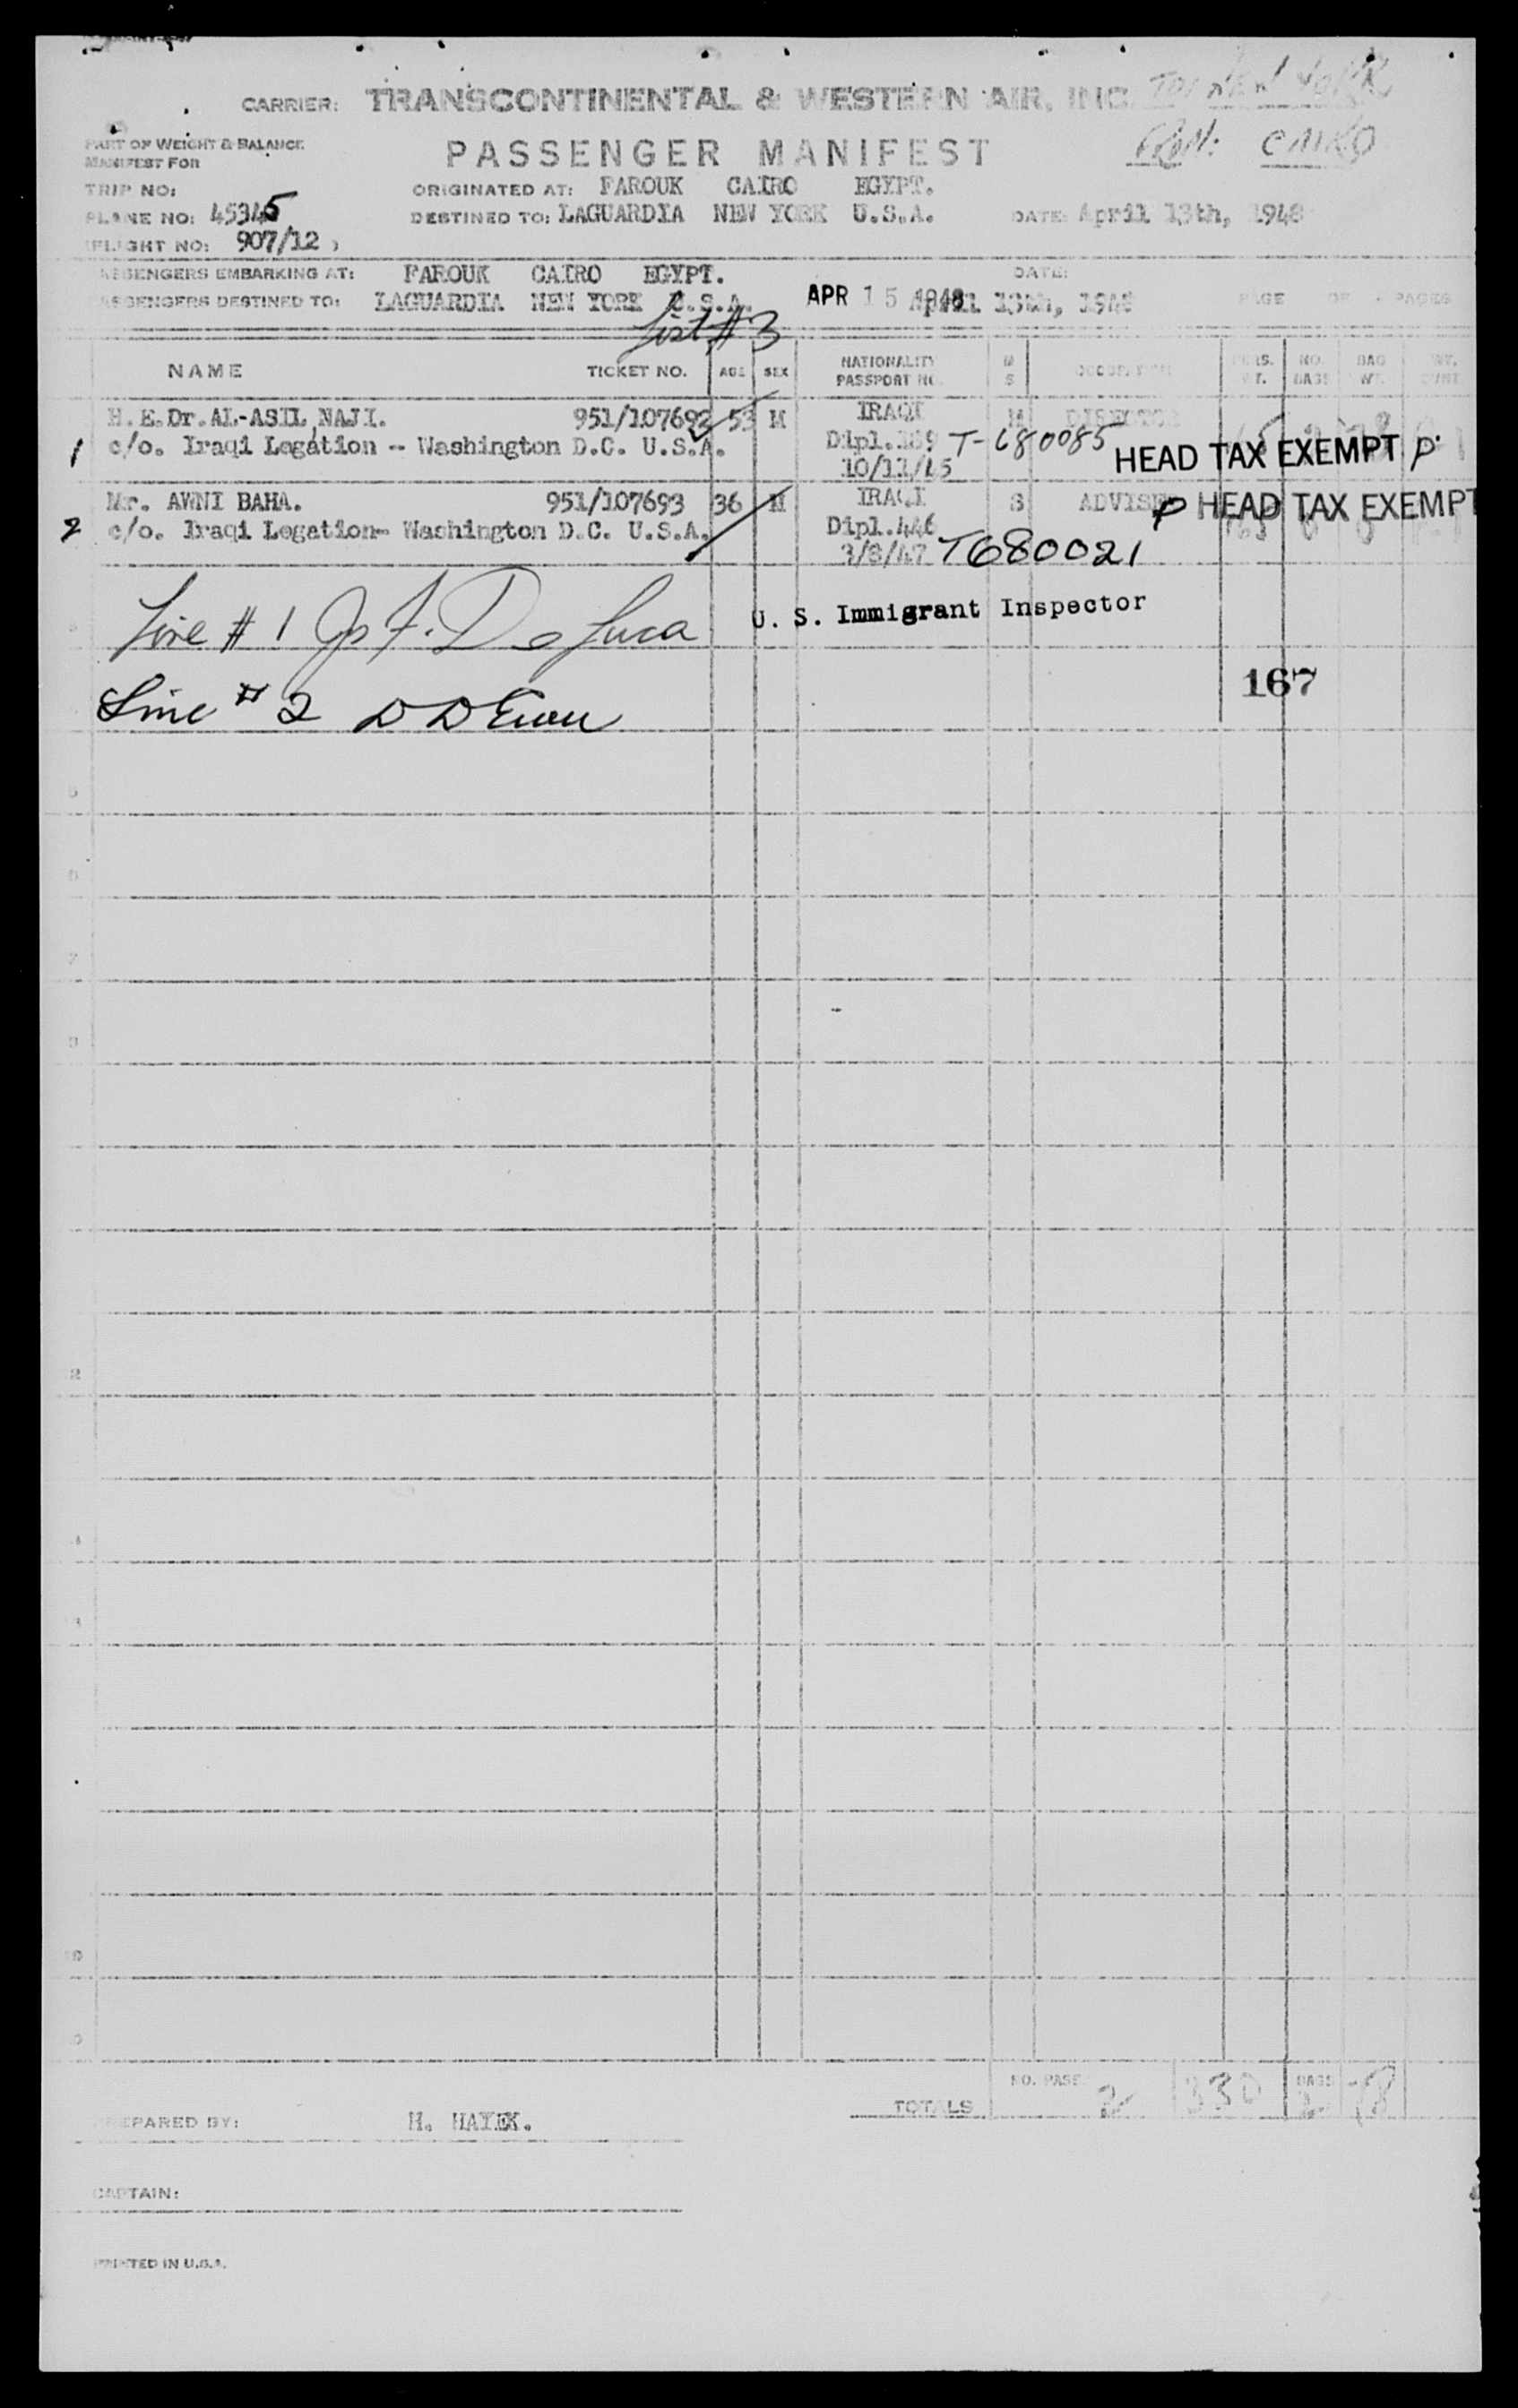 CARRIER: TRANSCONTINENTAL & WESTERN AIR, INC. TO: NEW YORK
PART OF WEIGHT & BALANCE PASSENGER MANIFEST FROM: CAIRO
MANIFEST FOR
TRIP NO: ORIGINATED AT: FAROUK CAIRO EGYPT.
PLANE NO: 45345 DESTINED TO: LAGUARDIA NEW YORK U.S.A. DATE: April 13th, 1948
FLIGHT NO: 907/12
PASSENGERS EMBARKING AT: FAROUK CAIRO EGYPT. DATE:
PASSENGERS DESTINED TO: LAGUARDIA NEW YORK U.S.A. APR 15 1948 April 13th, 1948 PAGE OF PAGES
List #3
NAME TICKET NO. AGE SEX NATIONALITY PASSPORT NO. M S OCCUPATION PERS. WT. NO. BAGS BAG WT.
H.E.Dr.AL-ASIL NAJI. 951/107692 53 M IRAQI M
1 c/o. Iraqi Legation -- Washington D.C. U.S.A. Dipl. T-680085 HEAD TAX EXEMPT P.
Mr. AWNI BAHA. 951/107693 36 M IRAQI S ADVISER P HEAD TAX EXEMPT
2 c/o. Iraqi Legation- Washington D.C. U.S.A. Dipl.446
3/8/47 T680021
Line # 1 Jos F. De Luca U. S. Immigrant Inspector
167
Line # 2 D D
NO. PASS. 2 330 BAGS 2
TOTALS
PREPARED BY: H. HAYEK.
CAPTAIN:
PRINTED IN U.S.A.